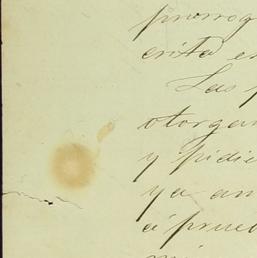 prorrog
crita en
Las p
otorgan
y pidie
ya an
á prueb